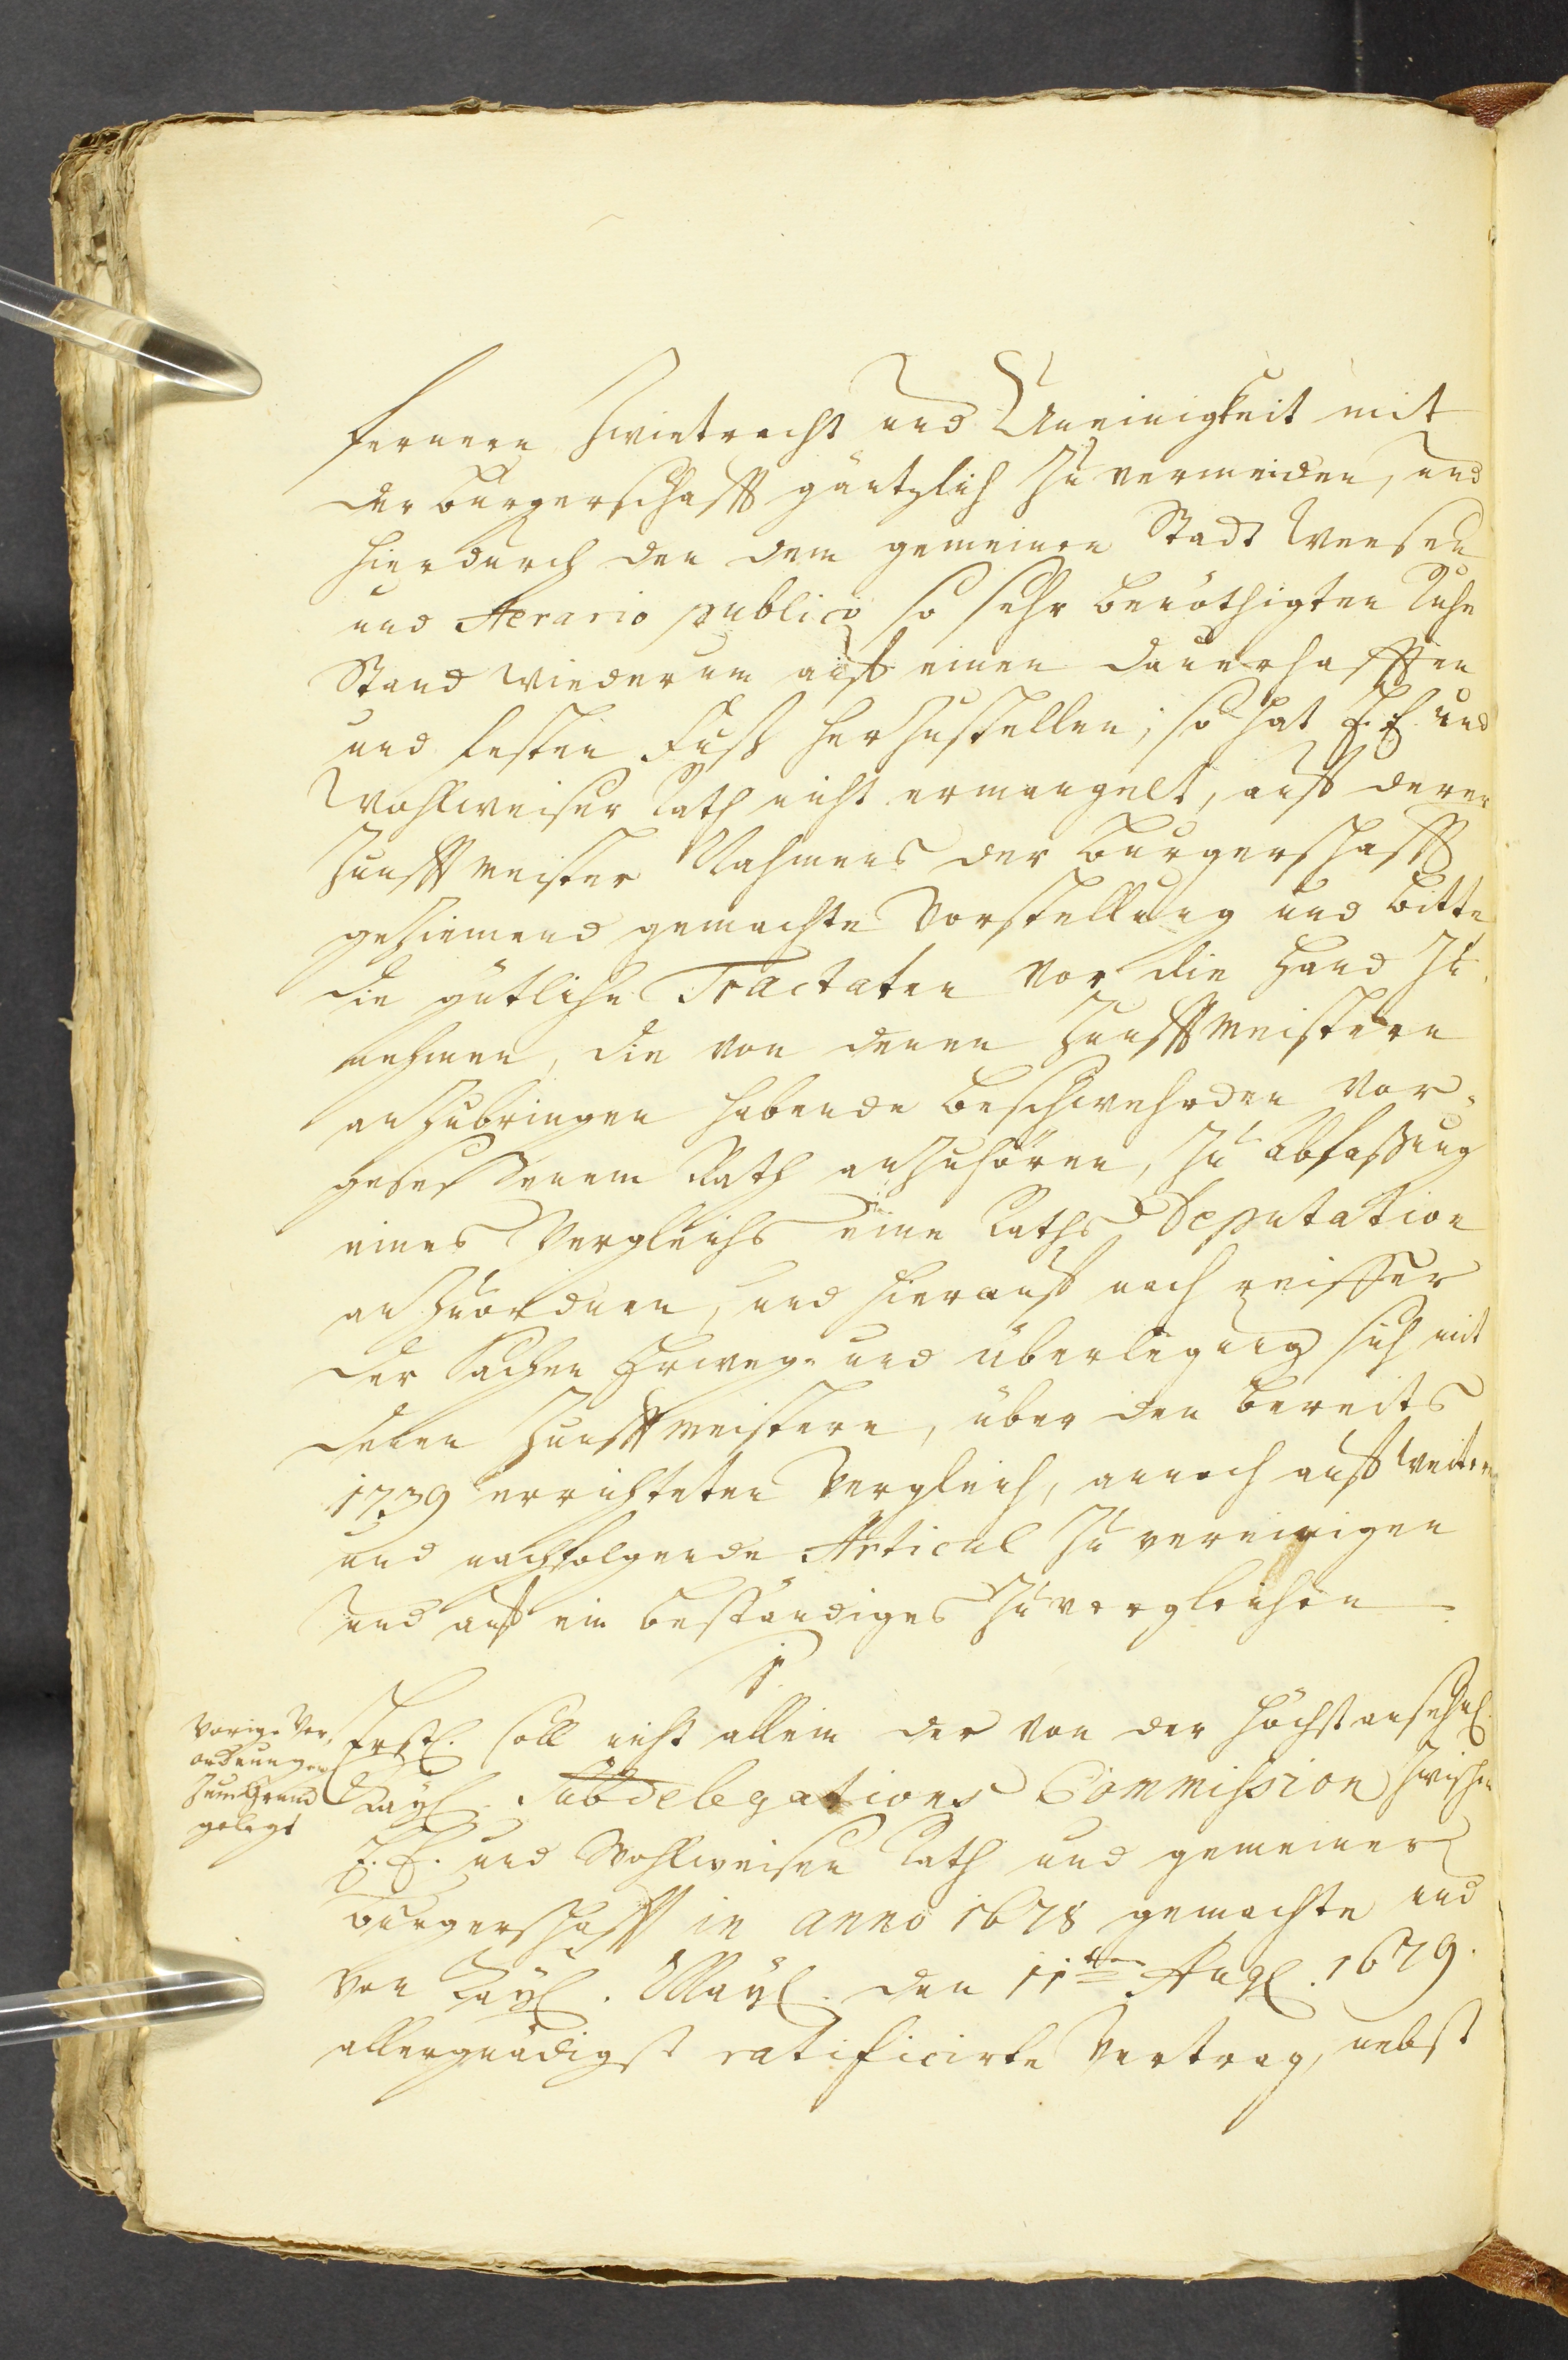 fernern Zwietracht und Uneinigkeit mit
der Burgerschafft gäntzlich zu vermeiden, und
hierdurch den dem gemeinen Stadt Weesen
und Aerario publico so sehr benöthigten Ruhe
Stand wiederum auf einen dauerhafften
und festen Fuß herzustellen; so hat E. E. und
Wohlweiser Rath nicht ermangelt, auf derer
Zunfftmeister Nahmens der Burgerschafft
geziemend gemachte Vorstellung und Bitte
die gütliche Tractaten vor die Hand zu
nehmen, die von denen Zunfftmeistern
anzubringen habende Beschwehrden vor-
gesessenem Rath anzuhören, zu Abfaßung
eines Vergleichs eine Raths Deputation
anzuordnen, und hierauf nach reiffer
der Sachen Erweg- und Überlegung sich mit
denen Zunfftmeistern, über den bereits
1739 errichteten Vergleich, annoch auf weitere
und nachfolgende Articul zu vereinigen
und auf ein beständiges zu vergleichen
1.
Vorige Ver-
ordnungen
zum Grund
gelegt
Erstl. soll nicht allein der von der höchstansehnl.
Kayl. Subdelegations Commission zwischen
E. E. und Wohlweisen Rath und gemeiner
Burgerschafft in anno 1678 gemachte und
von Kayl. Mayl. den 11ten Augl. 1679.
allergnädigst ratificirte Vertrag, nebst